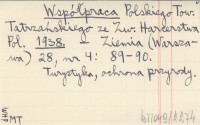 Współpraca Polskiego Tow.
Tatrzańskiego ze Zw. Harcerstwa
Pol. 1938. – Ziemia (Warsza-
wa) 28, nr 4: 89-90.
Turystyka, ochrona przyrody.
MT